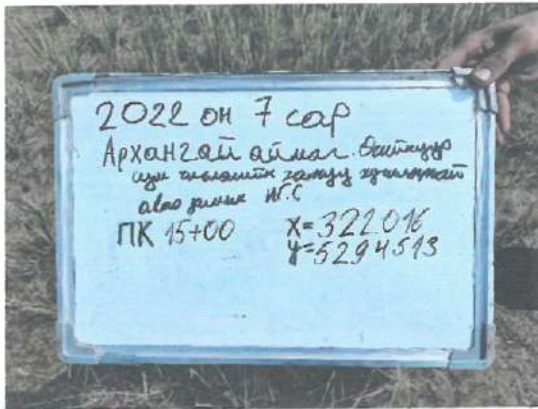 2022 он 7 сар
Архангай аймаг. Өгийнуур
сум чиглэлийн хатуу хучилттай
авто замын И.С
ПК 15+00 x=322016
y=5294513